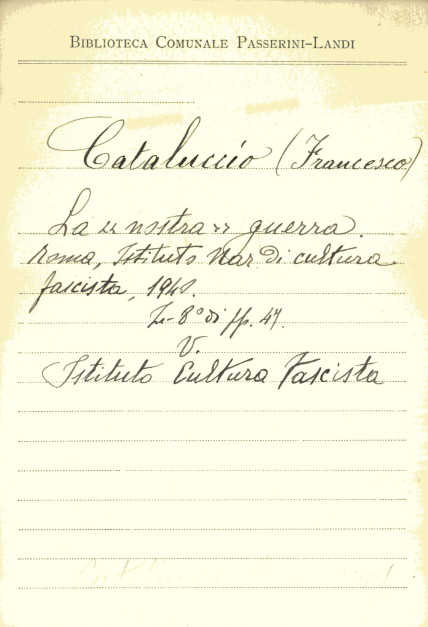 BIBLIOTECA COMUNALE PASSERINI-LANDI
Cataluccio (Francesco)
La «nostra» guerra.
Roma, Istituto Naz. di cultura
fascista, 1940.
In-8° di pp. 47.
V.
Istituto Cultura Fascista